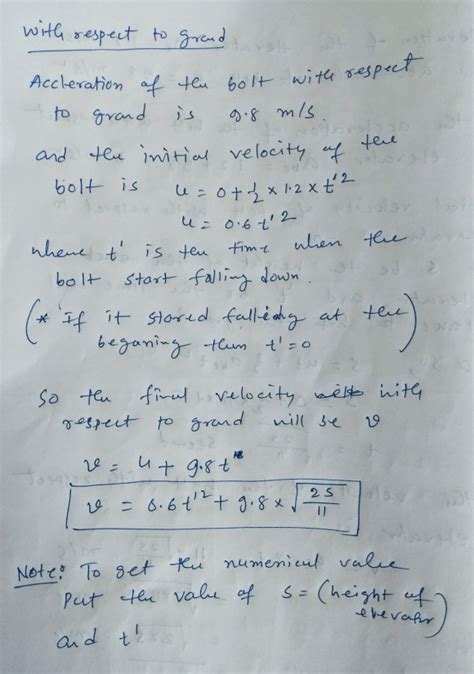 with respect to grand
Accleration of the bolt with respect
to grand is 9.8 m/s.
and the initial velocity of the
bolt is u = 0 + 1/2 × 1.2 × t'^2
u = 0.6 t'^2
where t' is the time when the
bolt start falling down.
(* If it stored falleing at the
beganing then t' = 0)
So the final velocity with
respect to grand will be v
v = u + 9.8 t
v = 0.6 t'^2 + 9.8 × √(2S/11)
Note: To get the numenical value
Put the value of S = (height of
elevator)
and t'